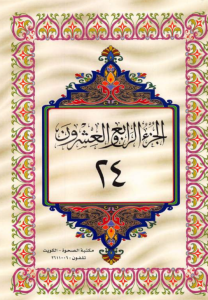 الجزء الرابع والعشرون
٢٤
مكتبة الصحوة - الكويت
تلفون : ٢٦١١٠٠٦